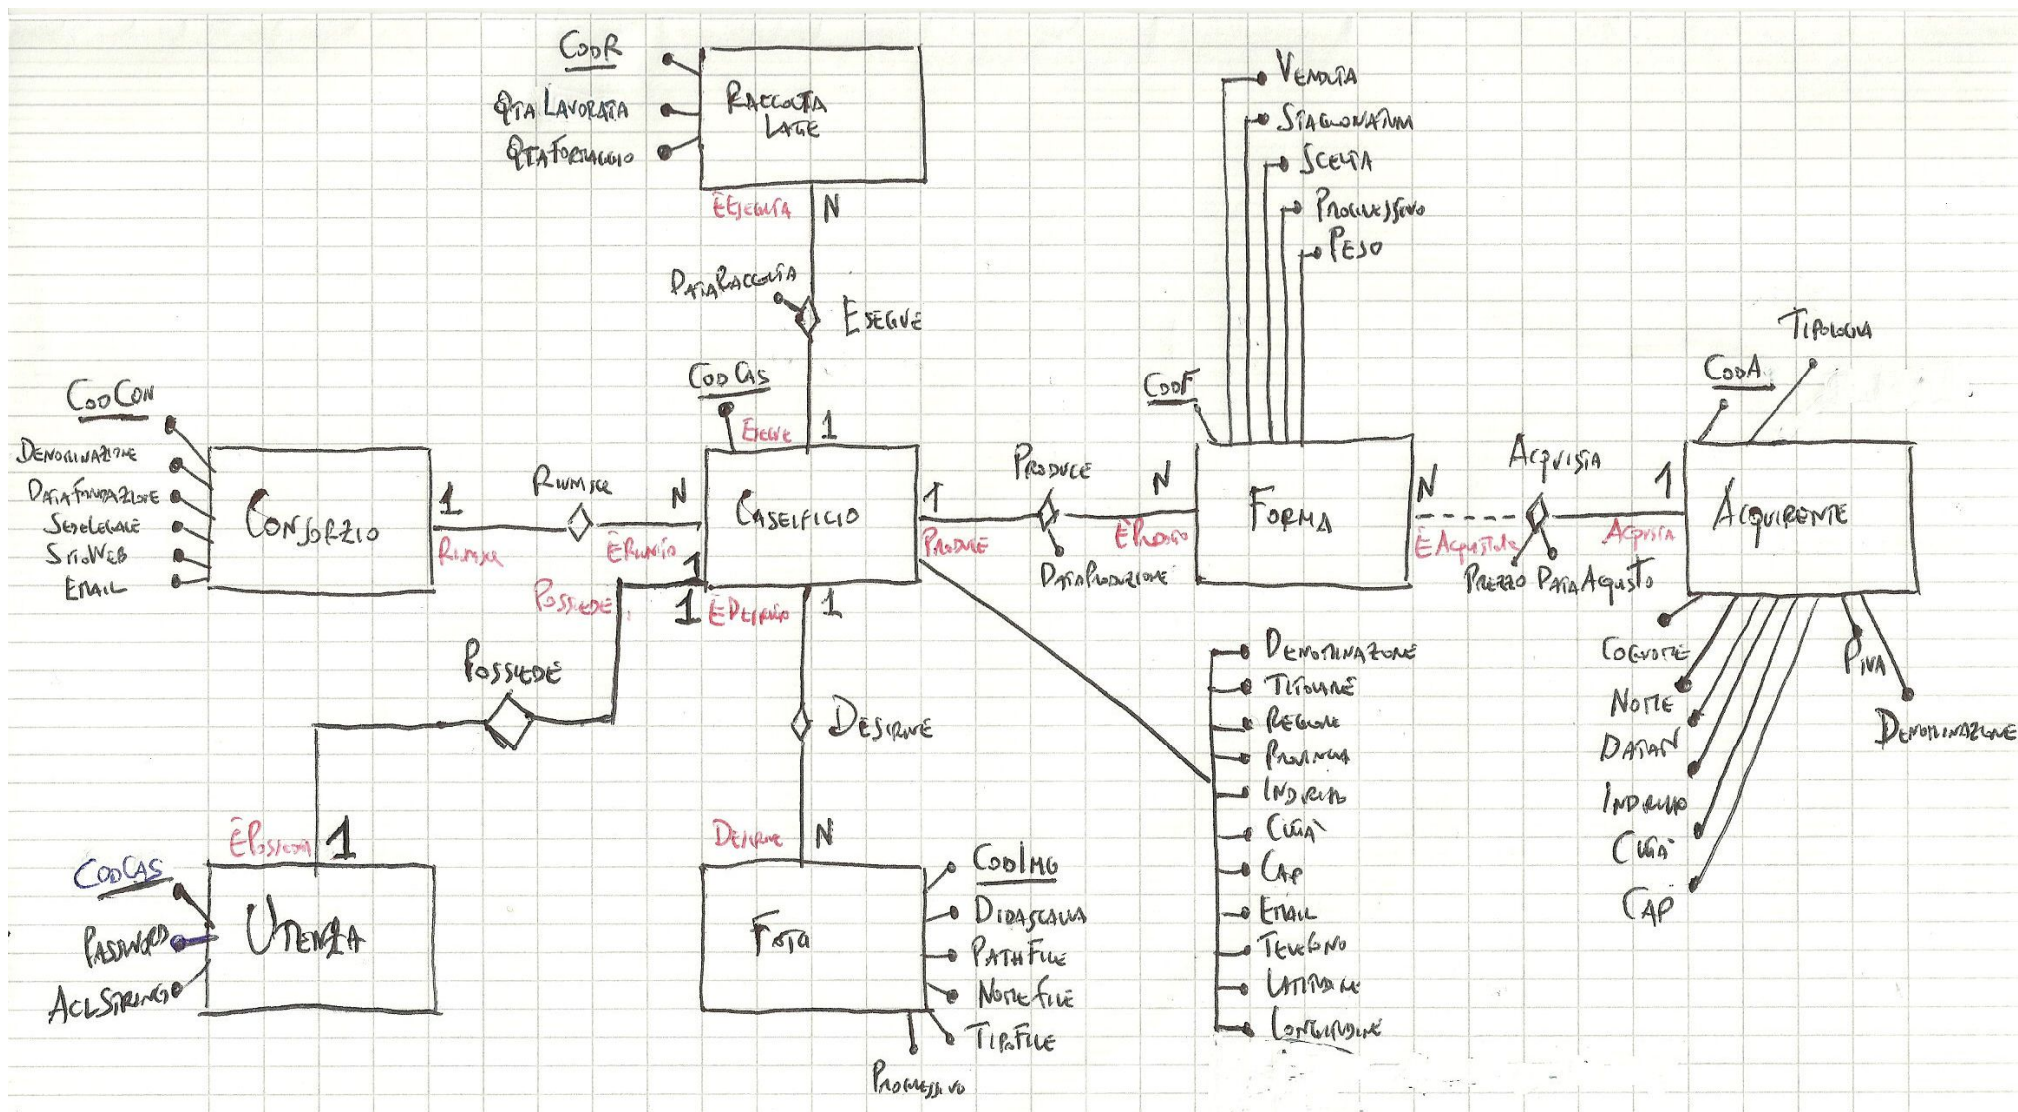 CodR
Qta Lavorata
QtaFormaggio
Raccolta
Latte
ÈEseguita
N
DataRaccolta
Esegue
CodCas
Esegue
1
CodCon
Denominazione
DataFondazione
SedeLegale
SitoWeb
Email
Consorzio
1
Riunisce
Riunisce
N
ÈRiunito
Caseificio
1
Produce
Produce
DataProduzione
N
ÈProdotto
CodF
Vendita
Stagionatura
Scelta
Progressivo
Peso
Forma
N
ÈAcquistata
Acquista
Prezzo
DataAcquisto
1
Acquista
CodA
Tipologia
Acquirente
Cognome
Nome
DataN
Indirizzo
Città
Cap
PIva
Denominazione
1
Possiede
1
Possiede
ÈPosseduta
1
CodCas
Password
AclString
Utenza
1
Desirve
Desirve
N
Foto
CodImg
Didascalia
PathFile
NomeFile
TipoFile
Progressivo
Denominazione
Titolare
Regione
Provincia
Indirizzo
Città
Cap
Email
Telefono
Latitudine
Longitudine